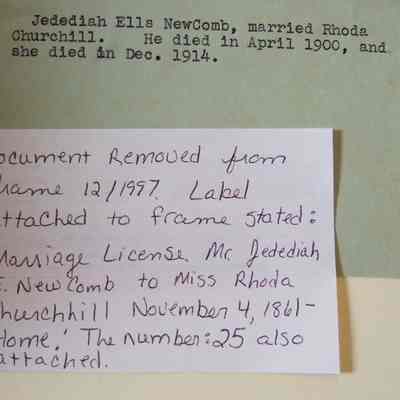 Jedediah Ells NewComb, married Rhoda
Churchill. He died in April 1900, and
she died in Dec. 1914.
ocument Removed from
rame 12/1997. Label
ttached to frame stated:
Marriage License. Mr. Jedediah
E. NewComb to Miss Rhoda
Churchhill November 4, 1861-
Home.' The number: 25 also
attached.